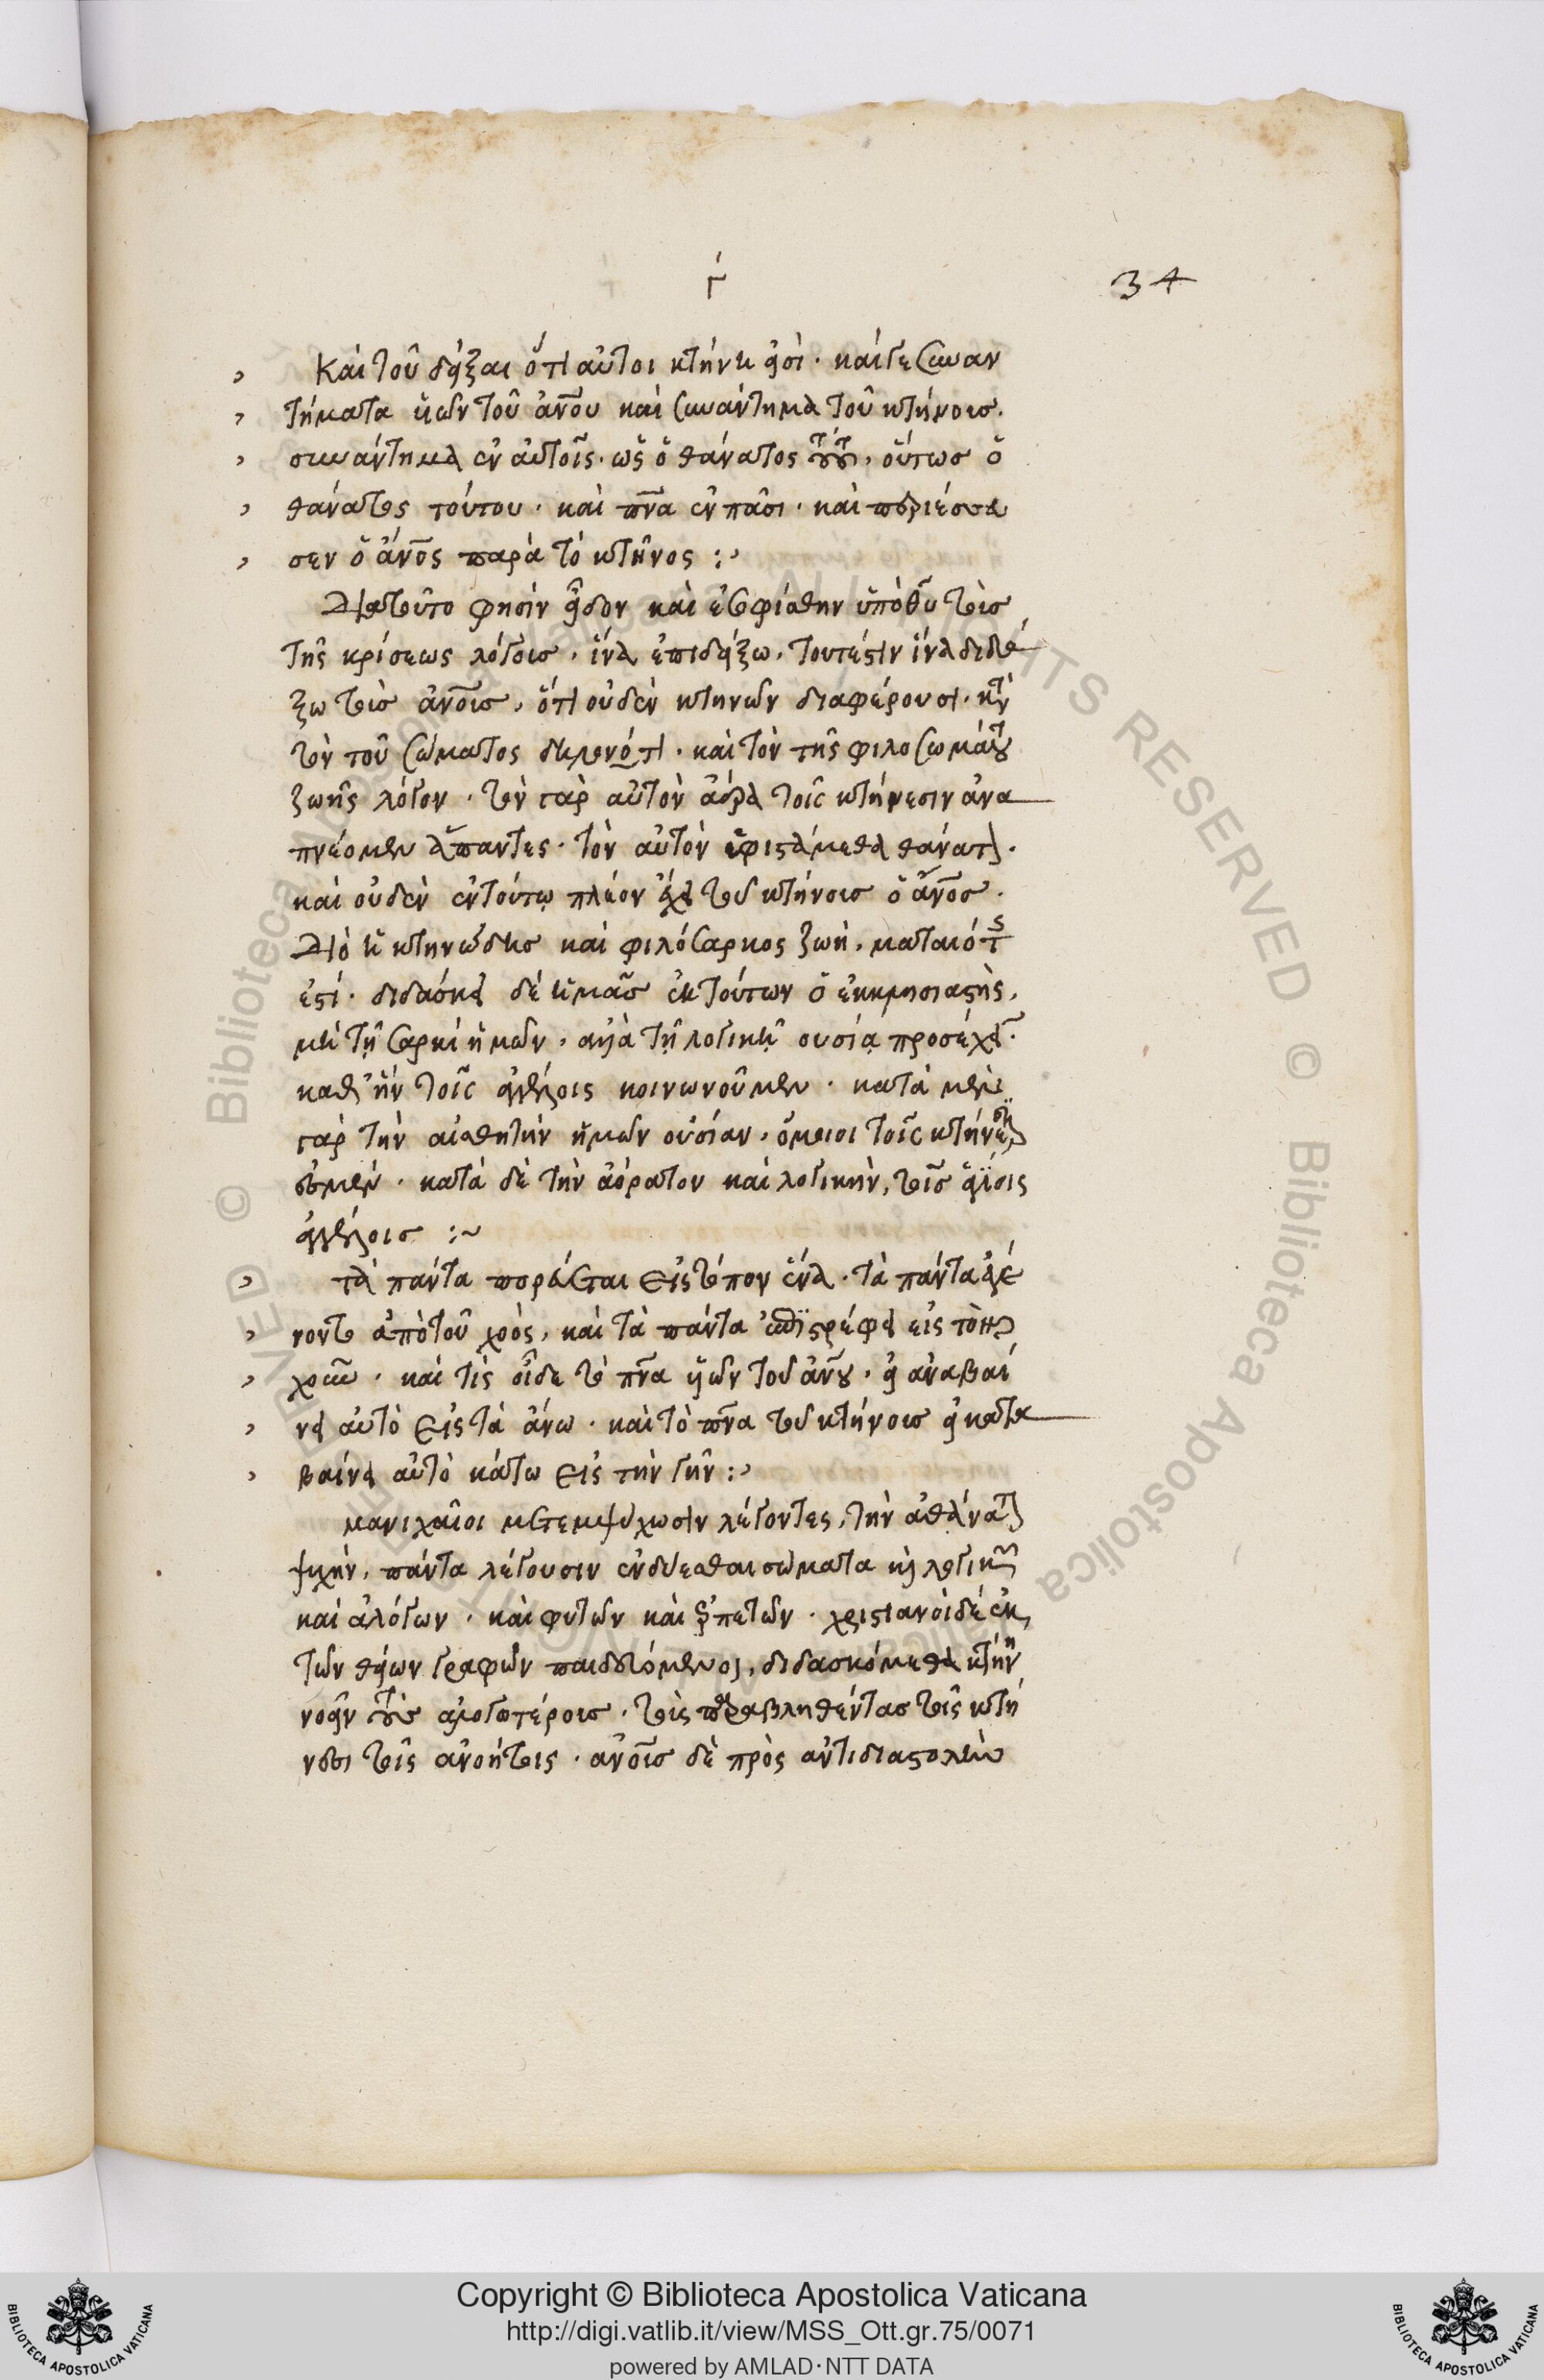 γ
34
Καὶ τοῦ δεῖξαι ὅτι αὐτοὶ κτήνη εἰσί· καί γε συναν
τήματα υἱῶν τοῦ ἀνου καὶ συνάντημα τοῦ κτήνους.
συνάντημα ἓν αὐτοῖς. ὡς ὁ θάνατος τούτου, οὕτως ὁ
θάνατος τούτου· καὶ πνα ἓν πᾶσι· καὶ τί ἐπερίσσευ
σεν ὁ ἀνος παρὰ τὸ κτῆνος :
Διατοῦτο φησὶν εἶδον καὶ ἐσοφίσθην ὑπὸ θυ τοῖς
τῆς κρίσεως λόγοις, ἵνα ἐπιδείξω, τουτέστιν ἵνα διδά
ξω τοὺς ἀνους, ὅτι οὐδὲν κτηνῶν διαφέρουσι, κτ
τὸν τοῦ σώματος δηλονότι· καὶ τὸν τῆς φιλοσωμάτου
ζωῆς λόγον· τὸν γὰρ αὐτὸν ἀέρα τοῖς κτήνεσιν ἀνα
πνέομεν ἅπαντες· τὸν αὐτὸν ὑφιστάμεθα θάνατον.
καὶ οὐδὲν ἐν τούτῳ πλέον ἔχει τοῦ κτήνους ὁ ἀνος.
Διὸ ἡ κτηνώδης καὶ φιλόσαρκος ζωή, ματαιότης
ἐστί· διδάσκει δὲ ἡμᾶς ἐκ τούτων ὁ ἐκκλησιαστής,
μὴ τῇ σαρκὶ ἡμῶν, ἀλλὰ τῇ λογικῇ οὐσίᾳ προσέχειν.
καθ' ἣν τοῖς ἀγγέλοις κοινωνοῦμεν· κατὰ μὲν
γὰρ τὴν αἰσθητὴν ἡμῶν οὐσίαν, ὅμοιοι τοῖς κτήνεσιν
ἐσμέν· κατὰ δὲ τὴν ἀόρατον καὶ λογικήν, τοῖς θείοις
ἀγγέλοις :~
τὰ πάντα πορεύεται εἰς τόπον ἕνα· τὰ πάντα ἐγέ
νοντο ἀπὸ τοῦ χοός, καὶ τὰ πάντα ἐπιστρέφει εἰς τὸν
χοῦν· καὶ τίς οἶδε τὸ πνα υἱῶν τοῦ ἀνου· εἰ ἀναβαί
νει αὐτὸ εἰς τὰ ἄνω· καὶ τὸ πνα τοῦ κτήνους εἰ κατα
βαίνει αὐτὸ κάτω εἰς τὴν γῆν :
μανιχαῖοι μετεμψύχωσιν λέγοντες, τὴν ἀθάνατον
ψυχήν, πάντα λέγουσιν ἐνδύεσθαι σώματα καὶ λογικῶν
καὶ ἀλόγων· καὶ φυτῶν καὶ ἑρπετῶν· χριστιανοὶ δὲ ἐκ
τῶν θείων γραφῶν παιδευόμενοι, διδασκόμεθα κτήνη
νοεῖν τοὺς ἀλογωτέρους· τοὺς παραβληθέντας τοῖς κτή
νεσι τοῖς ἀνοήτοις· ἀνους δὲ πρὸς ἀντιδιαστολὴν
Copyright © Biblioteca Apostolica Vaticana
http://digi.vatlib.it/view/MSS_Ott.gr.75/0071
powered by AMLAD·NTT DATA